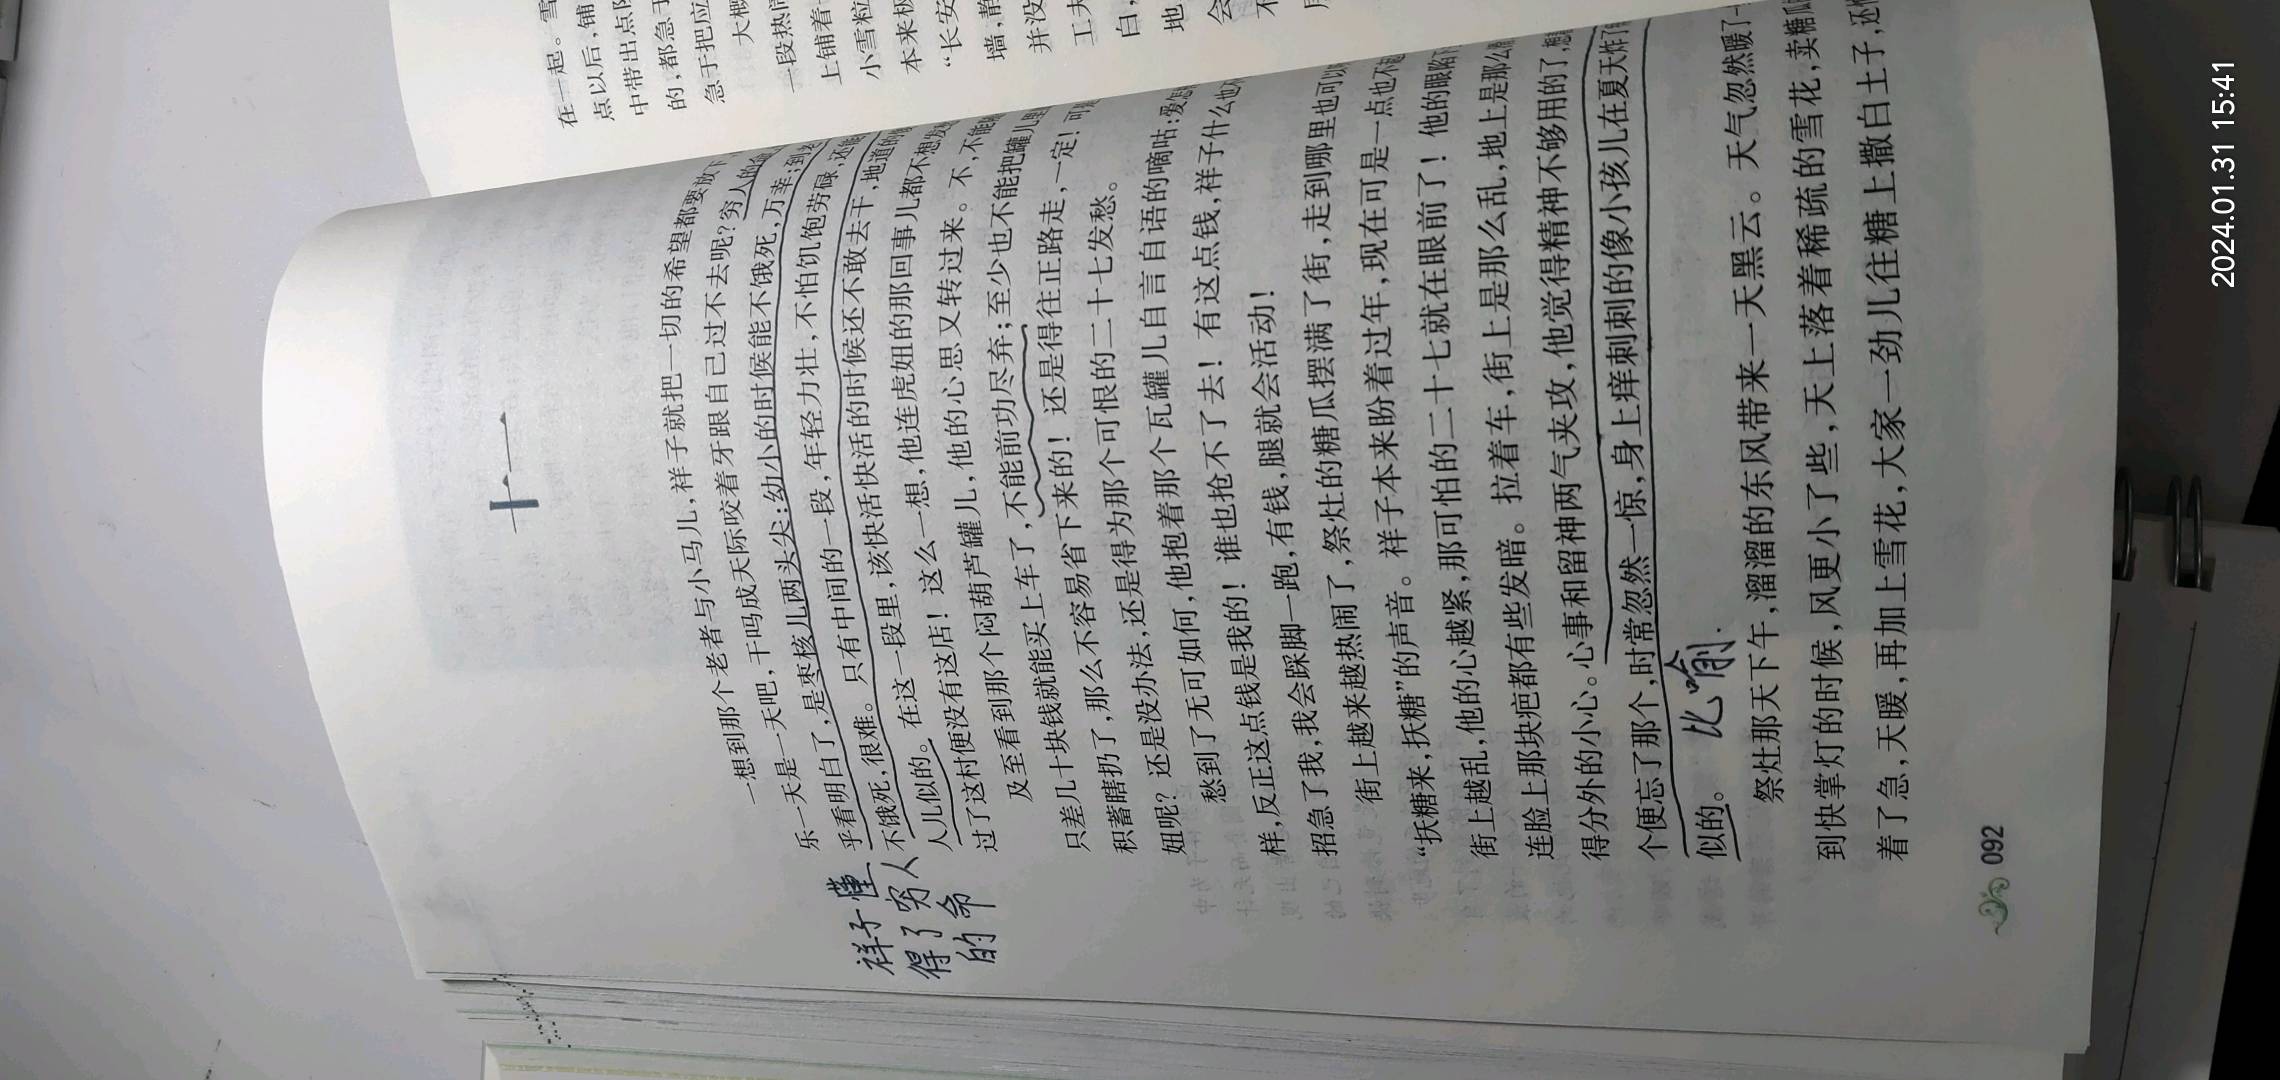 十一
一想到那个老者与小马儿，祥子就把一切的希望都要放下
乐一天是一天吧，干吗成天际咬着牙跟自己过不去呢？穷人的
乎看明白了，是枣核儿两头尖：幼小的时候能不饿死，万幸；到老
不饿死，很难。只有中间的一段，年轻力壮，不怕饥饱劳碌，还能
人儿似的。在这一段里，该快活快活的时候还不敢去干，地道的
过了这村便没有这店！这么一想，他连虎妞的那回事儿都不想发
及至看到那个闷葫芦罐儿，他的心思又转过来。不，不能
只差几十块钱就能买上车了，不能前功尽弃；至少也不能把罐儿里
积蓄瞎扔了，那么不容易省下来的！还是得往正路走，一定！可
妞呢？还是没办法，还是得为那个可恨的二十七发愁。
愁到了无可如何，他抱着那个瓦罐儿自言自语的嘀咕：爱怎
样，反正这点钱是我的！谁也抢不了去！有这点钱，祥子什么也
招急了我，我会跺脚一跑，有钱，腿就会活动！
街上越来越热闹了，祭灶的糖瓜摆满了街，走到哪里也可以
“抚糖来，抚糖”的声音。祥子本来盼着过年，现在可是一点也不
街上越乱，他的心越紧，那可怕的二十七就在眼前了！他的眼陷下
连脸上那块疤都有些发暗。拉着车，街上是那么乱，地上是那么
得分外的小心。心事和留神两气夹攻，他觉得精神不够用的了，想
个便忘了那个，时常忽然一惊，身上痒刺刺的像小孩儿在夏天炸了
似的。
比喻.
祭灶那天下午，溜溜的东风带来一天黑云。天气忽然暖了一
到快掌灯的时候，风更小了些，天上落着稀疏的雪花，卖糖瓜
着了急，天暖，再加上雪花，大家一劲儿往糖上撒白土子，还
祥子懂
得了穷人
的命
092
在一起。雪
点以后，铺
中带出点
的，都急于
急于把应
大概
一段热闹
上铺着一
小雪粒
本来极
“长安
墙，静
并没
工夫
白，
地，
会
不
2024.01.31 15:41